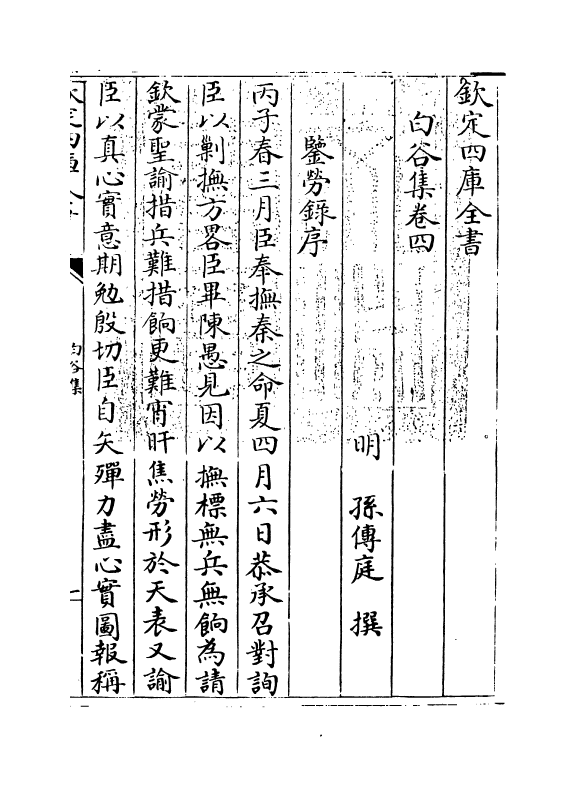 欽定四庫全書
白谷集卷四
明　孫傳庭　撰
鑒勞錄序
丙子春三月臣奉撫秦之命夏四月六日恭承召對詢
臣以剿撫方畧臣畢陳愚見因以撫標無兵無餉為請
欽蒙聖諭措兵難措餉更難宵旰焦勞形於天表又諭
臣以真心實意期勉殷切臣自矢殫力盡心實圖報稱
白谷集